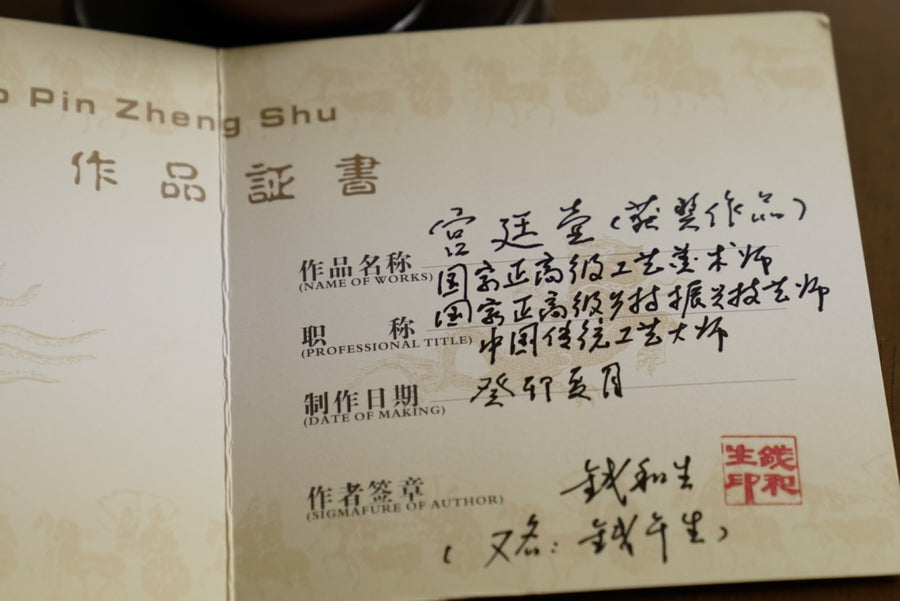 Pin Zheng Shu
作品証書
作品名称 宫廷壶(获奖作品)
(NAME OF WORKS)
国家正高级工艺美术师
职 称 国家正高级乡村振兴技艺师
(PROFESSIONAL TITLE) 中国传统工艺大师
制作日期 癸卯亥月
(DATE OF MAKING)
作者签章 钱和生
(SIGMAFURE OF AUTHOR)
(又名:钱午生)
钱和生印